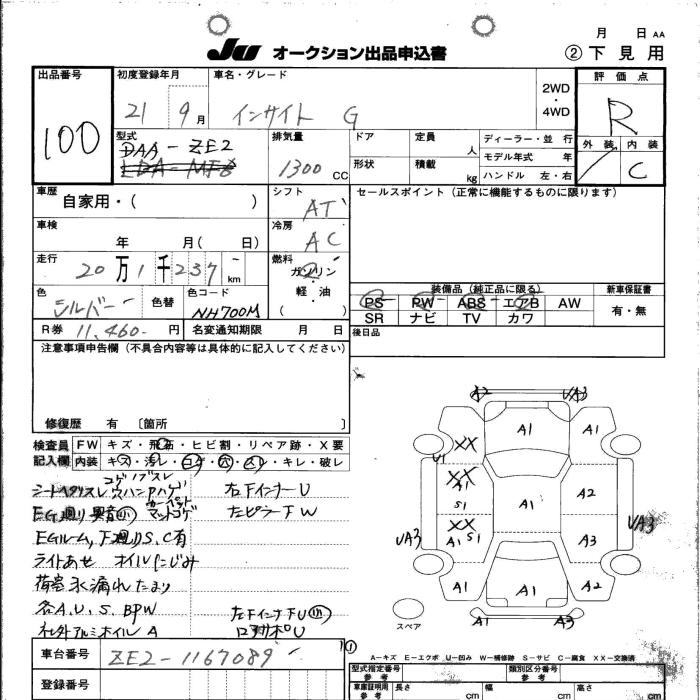 月 日 AA
JU オークション出品申込書
② 下見用
出品番号
100
初度登録年月
21 9月
車名・グレード
インサイト G
2WD
・
4WD
評価点
R
外装 内装
C
型式
DAA-ZE2
排気量
1300 CC
ドア
定員
人
形状
積載
kg
ディーラー・並行
モデル年式 年
ハンドル 左・右
車歴
自家用・( )
シフト
AT
セールスポイント (正常に機能するものに限ります)
車検
年 月( 日)
冷房
AC
走行
20万1千237 km
燃料
ガソリン
・
軽・油
( )
色
シルバー
色替
色コード
NH700M
装備品(純正品に限る)
新車保証書
PS PW ABS エアB AW
SR ナビ TV カワ
有・無
R券 11,460- 円
名変通知期限 月 日
後日品
注意事項申告欄(不具合内容等は具体的に記入してください)
修復歴 有 〔箇所 〕
検査員
記入欄
FW キズ・飛石・ヒビ割・リペア跡・X要
内装 キズ・汚レ・コゲ・穴・スレ・キレ・破レ
シートヘタリスレ
右FインナーU
左ピラーFW
EGルーム,下廻りS,C有
ライトあせ オイルにじみ
荷室水漏れたまり
各A.U.S.BPW
社外アルミホイルA
左FインナFU
A2 VA3
A1 A1 A1
XX
U1
XX
A1
S1
A1
A2
XX
A1 S1
A3
VA3
VA3
A1 A1 A2
A1 A3
スペア
A-キズ E-エクボ U-凹み W-補修跡 S-サビ C-腐食 XX-交換済
車台番号
ZE2-1167089
登録番号
①
型式指定番号
参考
類別区分番号
参考
車庫証明用
参考
長さ cm
幅 cm
高さ cm